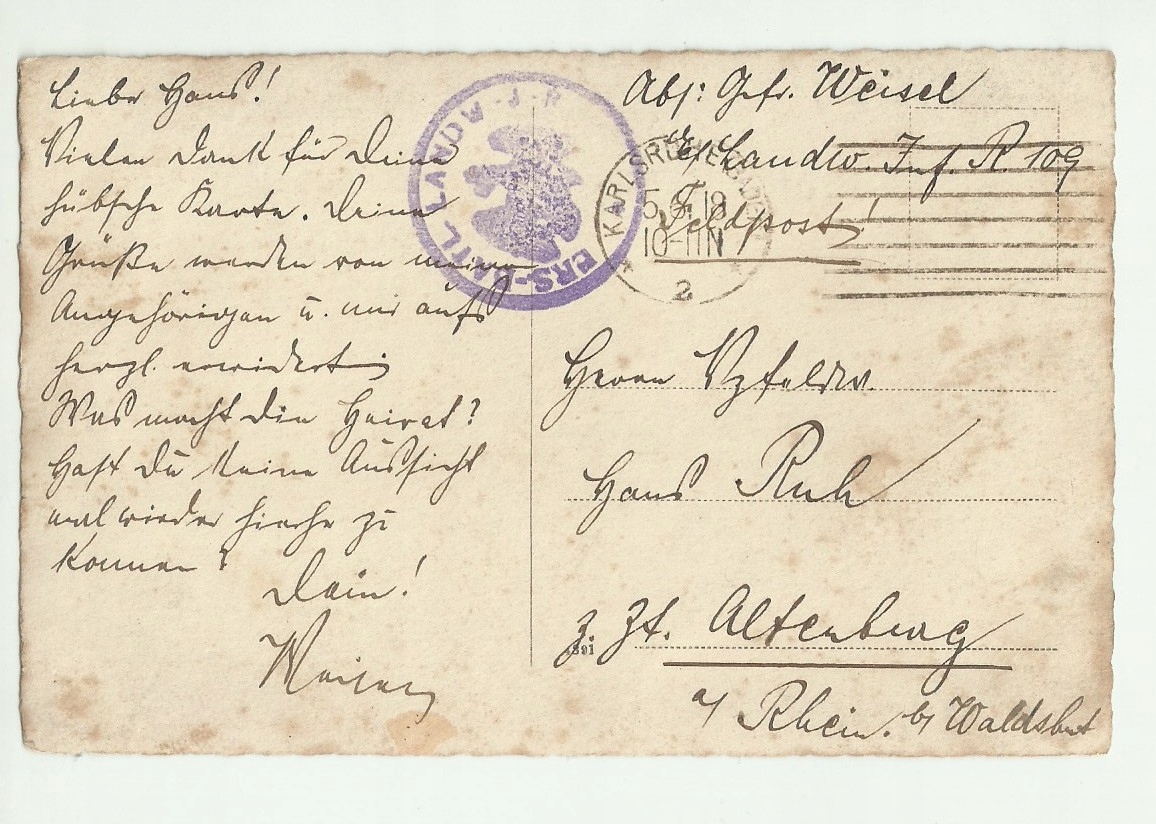 Lieber Hans!
Vielen Dank für Deine
hübsche Karte. Deine
Grüße werden von meinen
Angehörigen u. mir aufs
herzl. erwidert.
Was macht die Heirat?
Hast Du keine Aussicht
mal wieder hierher zu
kommen?
Dein!
ERS-BATL. LANDW-J-R
KARLSRUHE (BADEN)
5.6.18
10-11N
2
Abs: Gefr. Weisel
Landw. Inf. R. 109
Feldpost!
Herrn Vzfeldw.
Hans Ruh
z. Zt. Altenburg
a/ Rhein. b/ Waldshut